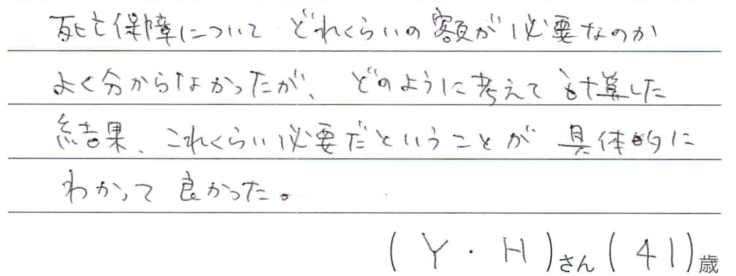 死亡保障について どれくらいの額が必要なのか
よく分からなかったが、どのように考えて計算した
結果、これくらい必要だということが 具体的に
わかって良かった。
(Y・H)さん(41)歳